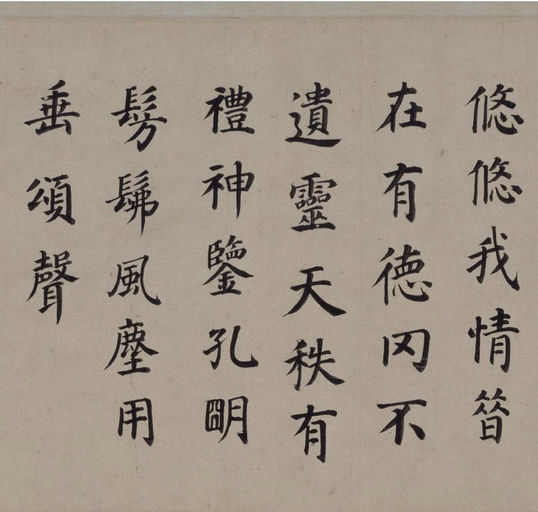 悠悠我情昔
在有德罔不
遺靈天秩有
禮神鑒孔明
髣髴風塵用
垂頌聲